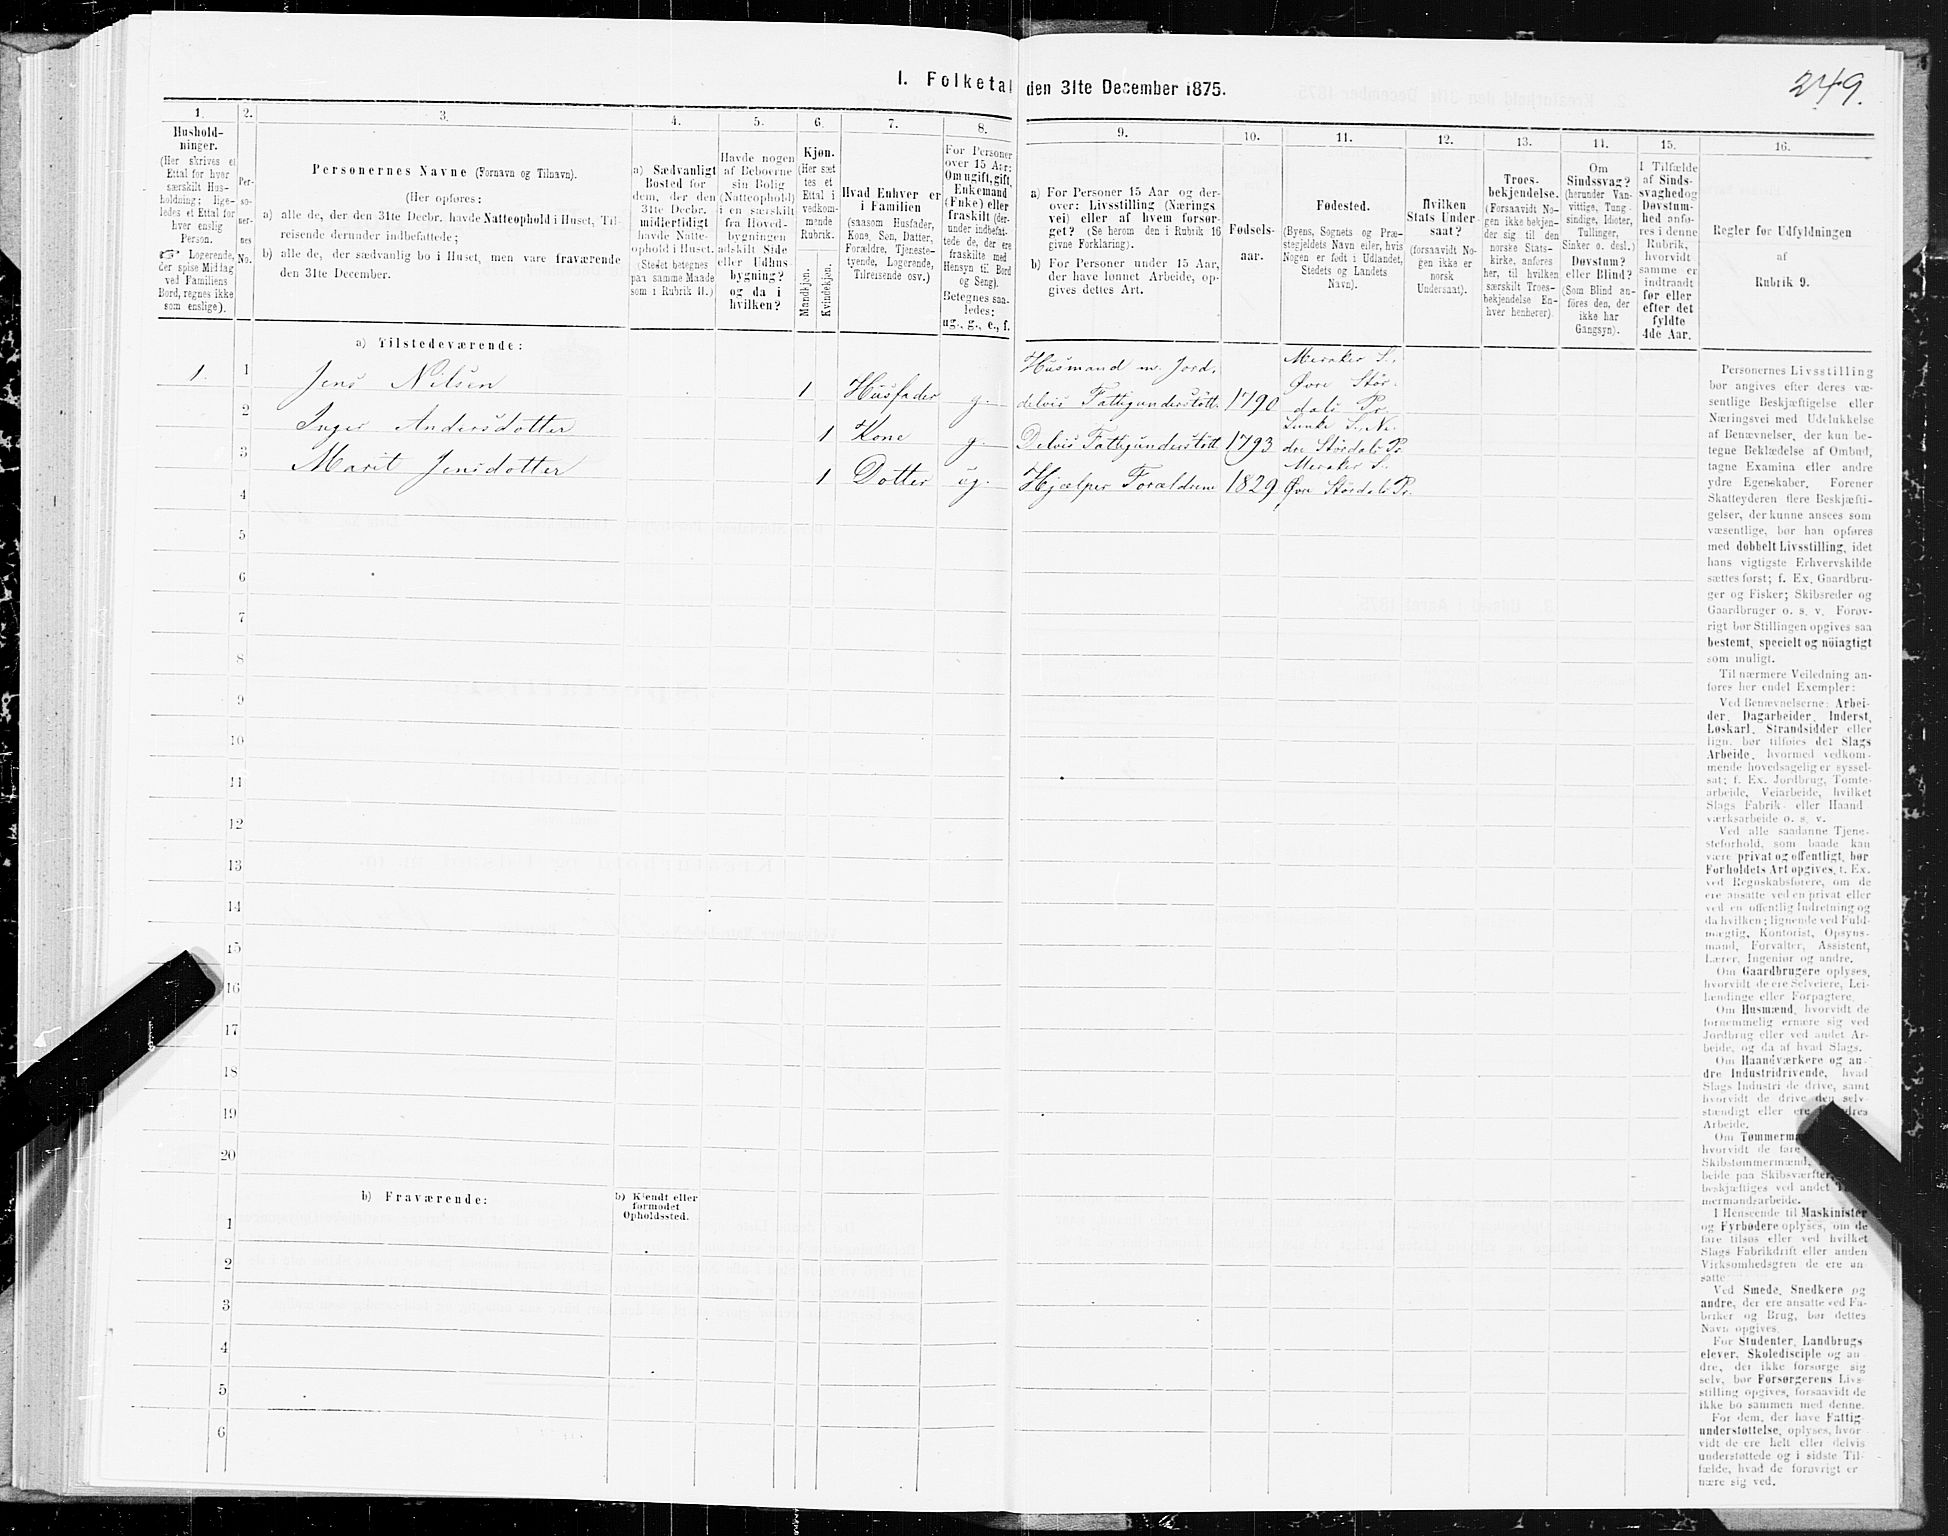 I. Folketal den 31te December 1875.
249.
1.
2.
3.
4.
5.
6.
7.
8.
9.
10.
11.
12.
13.
14.
15.
16.
Hushold-
ninger.
(Her skrives et
Ettal for hver
særskilt Hus-
holdning; lige-
ledes et Ettal for
hver enslig
Person.
☞ Logerende,
der spise Middag
ved Familiens
Bord, regnes ikke
som enslige).
Per-
so-
ner-
nes
No.
Personernes Navne (Fornavn og Tilnavn).
(Her opføres:
a) alle de, der den 31te Decbr. havde Natteophold i Huset, Til-
reisende derunder indbefattede;
b) alle de, der sædvanlig bo i Huset, men vare fraværende
den 31te December.
a) Sædvanligt
Bosted for
dem, der den
31te Decbr.
midlertidigt
havde Natte-
ophold i Huset.
(Stedet betegnes
paa samme Maade
som i Rubrik 11.)
Havde nogen
af Beboerne
sin Bolig
(Natteophold)
i en særskilt
fra Hoved-
bygningen
adskilt Side
eller Udhus-
bygning?
og da i
hvilken?
Kjøn.
(Her sæt-
tes et
Ettal i
vedkom-
mende
Rubrik.
Mandkjøn.
Kvindekjøn.
Hvad Enhver er
i Familien
(saasom Husfader,
Kone, Søn, Datter,
Forældre, Tjeneste-
tyende, Logerende,
Tilreisende osv.)
For Personer
over 15 Aar:
Om ugift, gift,
Enkemand
(Enke) eller
fraskilt (der-
under indbefat-
tede de, der ere
fraskilte med
Hensyn til Bord
og Seng).
Betegnes saa-
ledes:
ug., g., e., f.
a) For Personer 15 Aar og der-
over: Livsstilling (Nærings-
vei) eller af hvem forsør-
get? (Se herom den i Rubrik 16
givne Forklaring).
b) For Personer under 15 Aar,
der have lønnet Arbeide, op-
gives dettes Art.
Fødsels-
aar.
Fødested.
(Byens, Sognets og Præ-
stegjeldets Navn eller, hvis
Nogen er født i Udlandet,
Stedets og Landets
Navn).
Hvilken
Stats Under-
saat?
(forsaavidt No-
gen ikke er
norsk
Undersaat).
Troes-
bekjendelse.
(Forsaavidt No-
gen ikke bekjen-
der sig til den
norske Stats-
kirke, anføres
her, til hvilken
særskilt Troes-
bekjendelse En-
hver henhører).
Om
Sindssvag?
(herunder Van-
vittige, Tung-
sindige, Idioter,
Tullinger,
Sinker o. desl.)
Døvstum?
eller Blind?
(Som Blind an-
føres den, der
ikke har
Gangsyn).
I Tilfælde
af Sinds-
svaghed og
Døvstum-
hed anfø-
res i denne
Rubrik,
hvorvidt
samme er
indtraadt
før eller
efter det
fyldte
4de Aar.
Regler for Udfyldningen
af
Rubrik 9.
a) Tilstedeværende:
1. 1 Jens Nilsen 1 Husfader g. Husmand m. Jord. delvis Fattigunderstøtt. 1790 Meraker S., Øvre Stør- dals Pr.
2 Inger Andersdotter 1 Kone g. Delvis Fattigunderstøtt 1793 S. Ne- dre Størdals Pr.
3 Marit Jensdotter 1 Dotter ug. Hjælper Forældrene 1829 Meraker S. Øvre Størdals Pr.
4
5
6
7
8
9
10
11
12
13
14
15
16
17
18
19
20
b) Fraværende:
b) Kjendt eller
formodet
Opholdssted.
1
2
3
4
5
6
Personernes Livsstilling
bør angives efter deres væ-
sentlige Beskjæftigelse eller
Næringsvei med Udelukkelse
af Benævnelser, der kun be-
tegne Beklædelse af Ombud,
tagne Examina eller andre
ydre Egenskaber. Forener
Skatteyderen flere Beskjæfti-
gelser, der kunne ansees som
væsentlige, bør han opføres
med dobbelt Livsstilling, idet
hans vigtigste Erhvervskilde
sættes først; f. Ex. Gaardbru-
ger og Fisker; Skibsreder og
Gaardbruger o. s. v. Forøv-
rigt bør Stillingen opgives saa
bestemt, specielt og nøiagtigt
som muligt.
Til nærmere Veiledning an-
føres her endel Exempler:
Ved Benævnelserne: Arbei-
der, Dagarbeider, Inderst,
Løskarl, Strandsidder eller
lign. bør tilføies det Slags
Arbeide, hvormed vedkom-
mende hovedsagelig er syssel-
sat; f. Ex. Jordbrug, Tomte-
arbeide, Veiarbeide, hvilket
Slags Fabrik- eller Haand-
værksarbeide o. s. v.
Ved alle saadanne Tjene-
steforhold, som baade kan
være privat og offentligt, bør
Forholdets Art opgives, f. Ex.
ved Regnskabsførere, om de
ere ansatte ved en privat eller
ved en offentlig Indretning og
da hvilken; lignende ved Fuld-
mægtig, Kontorist, Opsyns-
mand, Forvalter, Assistent,
Lærer, Ingeniør og andre.
Om Gaardbrugere oplyses,
hvorvidt de ere Selveiere, Lei-
lændinge eller Forpagtere.
Om Husmænd, hvorvidt de
fornemmelig ernære sig ved
Jordbrug eller ved andet Ar-
beide, og da af hvad Slags.
Om Haandværkere og an-
dre Industridrivende, hvad
Slags Industri de drive, samt
hvorvidt de drive den selv-
stændigt eller ere
Arbeide.
Om
hvorvidt de fare
Skibstømmermænd,
beide paa Skibsværfter,
beskjæftiges ved andet
mermandsarbeide.
I Henseende til Maskinister
og Fyrbødere oplyses, om de
fare tilsøs eller ved hvilket
Slags Fabrikdrift eller anden
Virksomhedsgren de ere an-
satte
Ved Smede, Snedkere og
andre, der ere ansatte ved Fa-
briker og Brug, bør dettes
Navn opgives.
For Studenter, Landbrugs-
elever, Skoledisciple og an-
dre, der ikke forsørge sig
selv, bør Forsørgerens Livs-
stilling opgives, forsaavidt de
ikke bo sammen med denne.
For dem, der have Fattig-
understøttelse, oplyses, hvor-
vidt de ere helt eller delvis
understøttede og i sidste Til-
fælde, hvad de forøvrigt er-
nære sig ved.